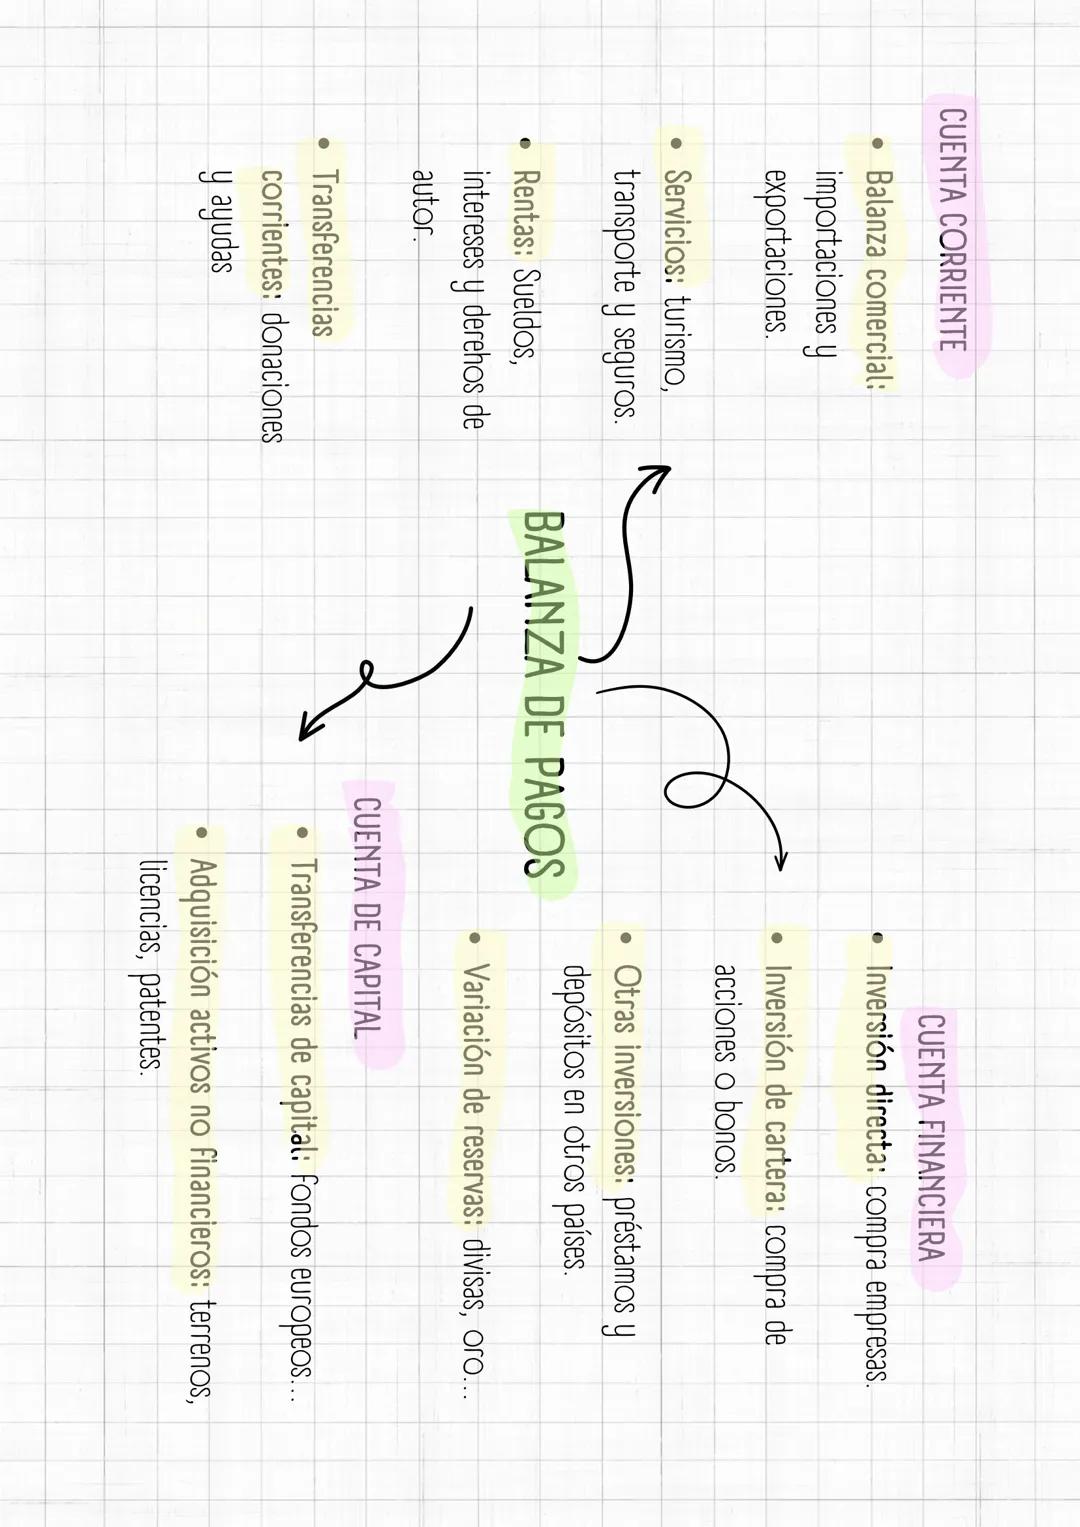 CUENTA CORRIENTE
• Balanza comercial:
importaciones y
exportaciones.
• Servicios: turismo,
transporte y seguros.
• Rentas: Sueldos,
intereses y derehos de
autor.
• Transferencias
corrientes: donaciones
y ayudas
BALANZA DE PAGOS
CUENTA FINANCIERA
• Inversión directa: compra empresas.
• Inversión de cartera: compra de
acciones o bonos.
• Otras inversiones: préstamos y
depósitos en otros países.
• Variación de reservas: divisas, oro...
CUENTA DE CAPITAL
• Transferencias de capital: fondos europeos...
• Adquisición activos no financieros: terrenos,
licencias, patentes.